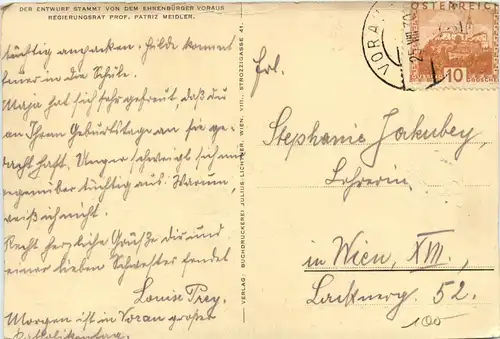 DER ENTWURF STAMMT VON DEM EHRENBÜRGER VORAUS
REGIERUNGSRAT PROF. PATRIZ MEIDLER.
tüchtig anpacken. Hilde kommt
heuer in die Schule.
Maja hat sich sehr gefreut, daß du
an Ihren Geburtstage an sie ge-
dacht hast. Unger schweigt sich mir
gegenüber tüchtig aus. Warum,
weiß ich nicht.
Recht herzliche Grüße dir und
einer lieben Schwester sendet
Louise Prey.
Morgen ist in Vorau großer
Katholikentag.
VERLAG: BUCHDRUCKEREI JULIUS LICHTNER, WIEN, VIII., STROZZIGASSE 41.
ÖSTERREICH
10
VORA
Frl.
Stephanie Jakubey
Lehrerin
in Wien, XIII.
52.
100